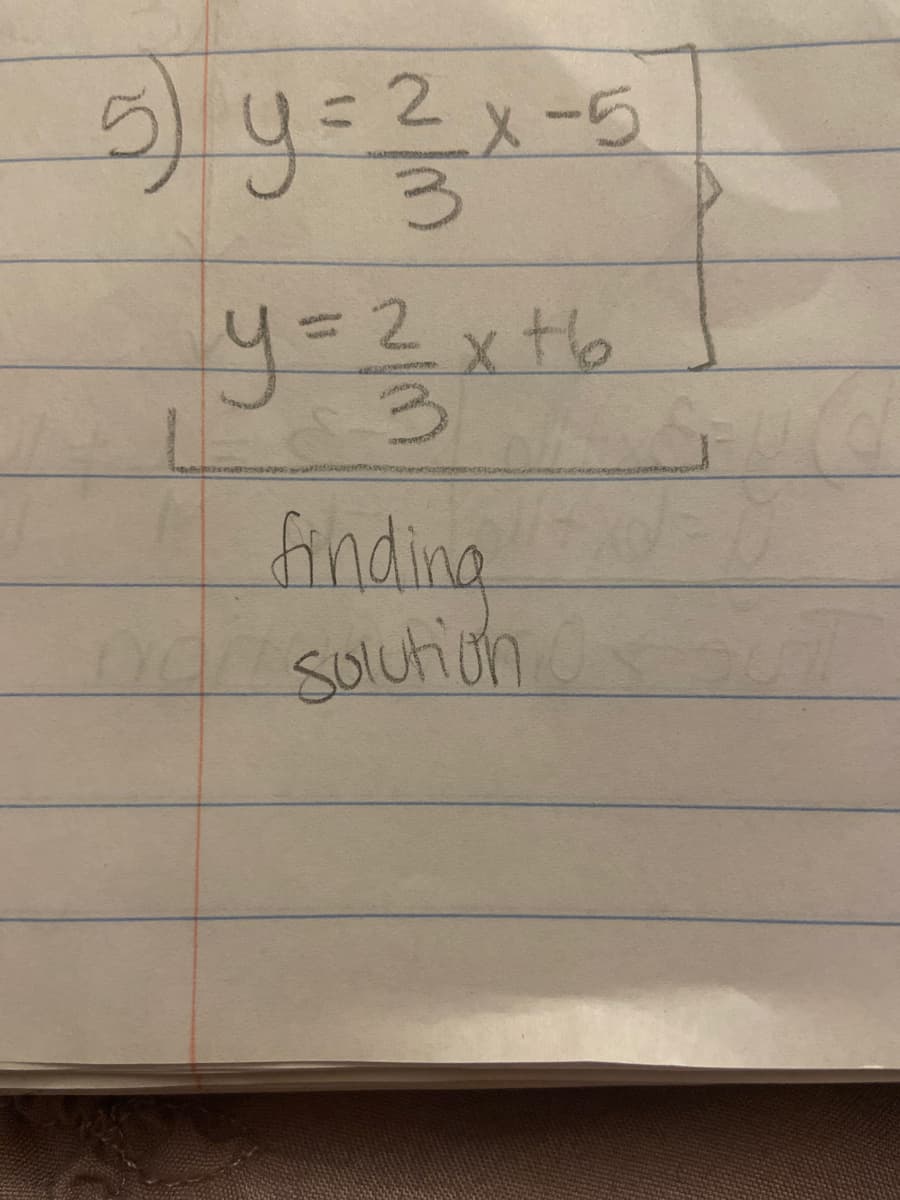 5) y = 2/3 x - 5
y = 2/3 x + 6
finding
solution